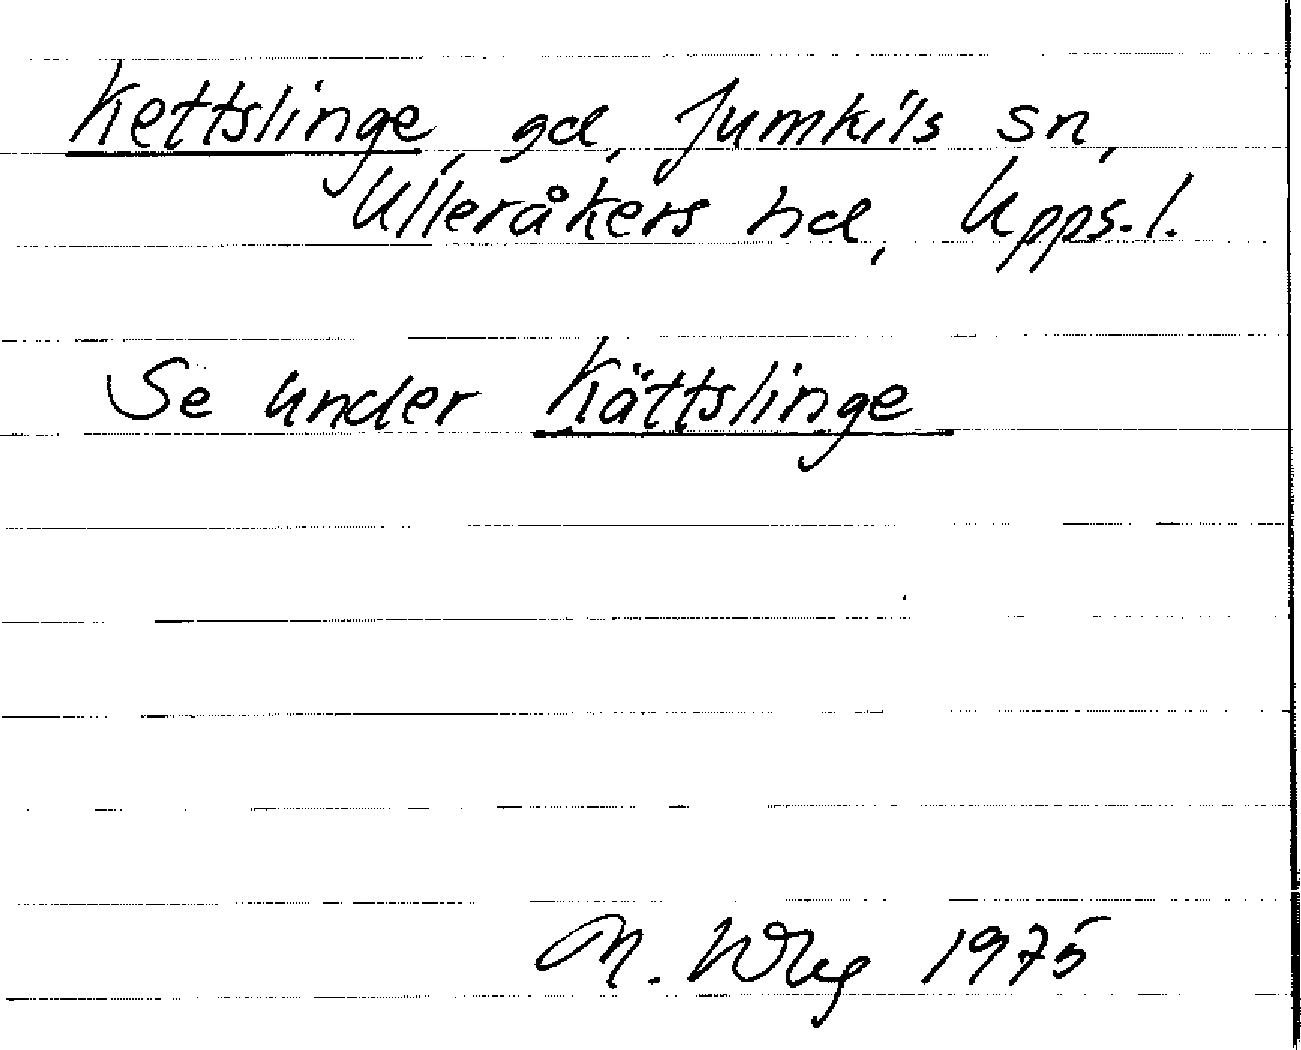 Kettslinge, gd, Jumkils sn,
Ulleråkers hd, Upps. l.
Se under Kättslinge
M. Wbg 1975